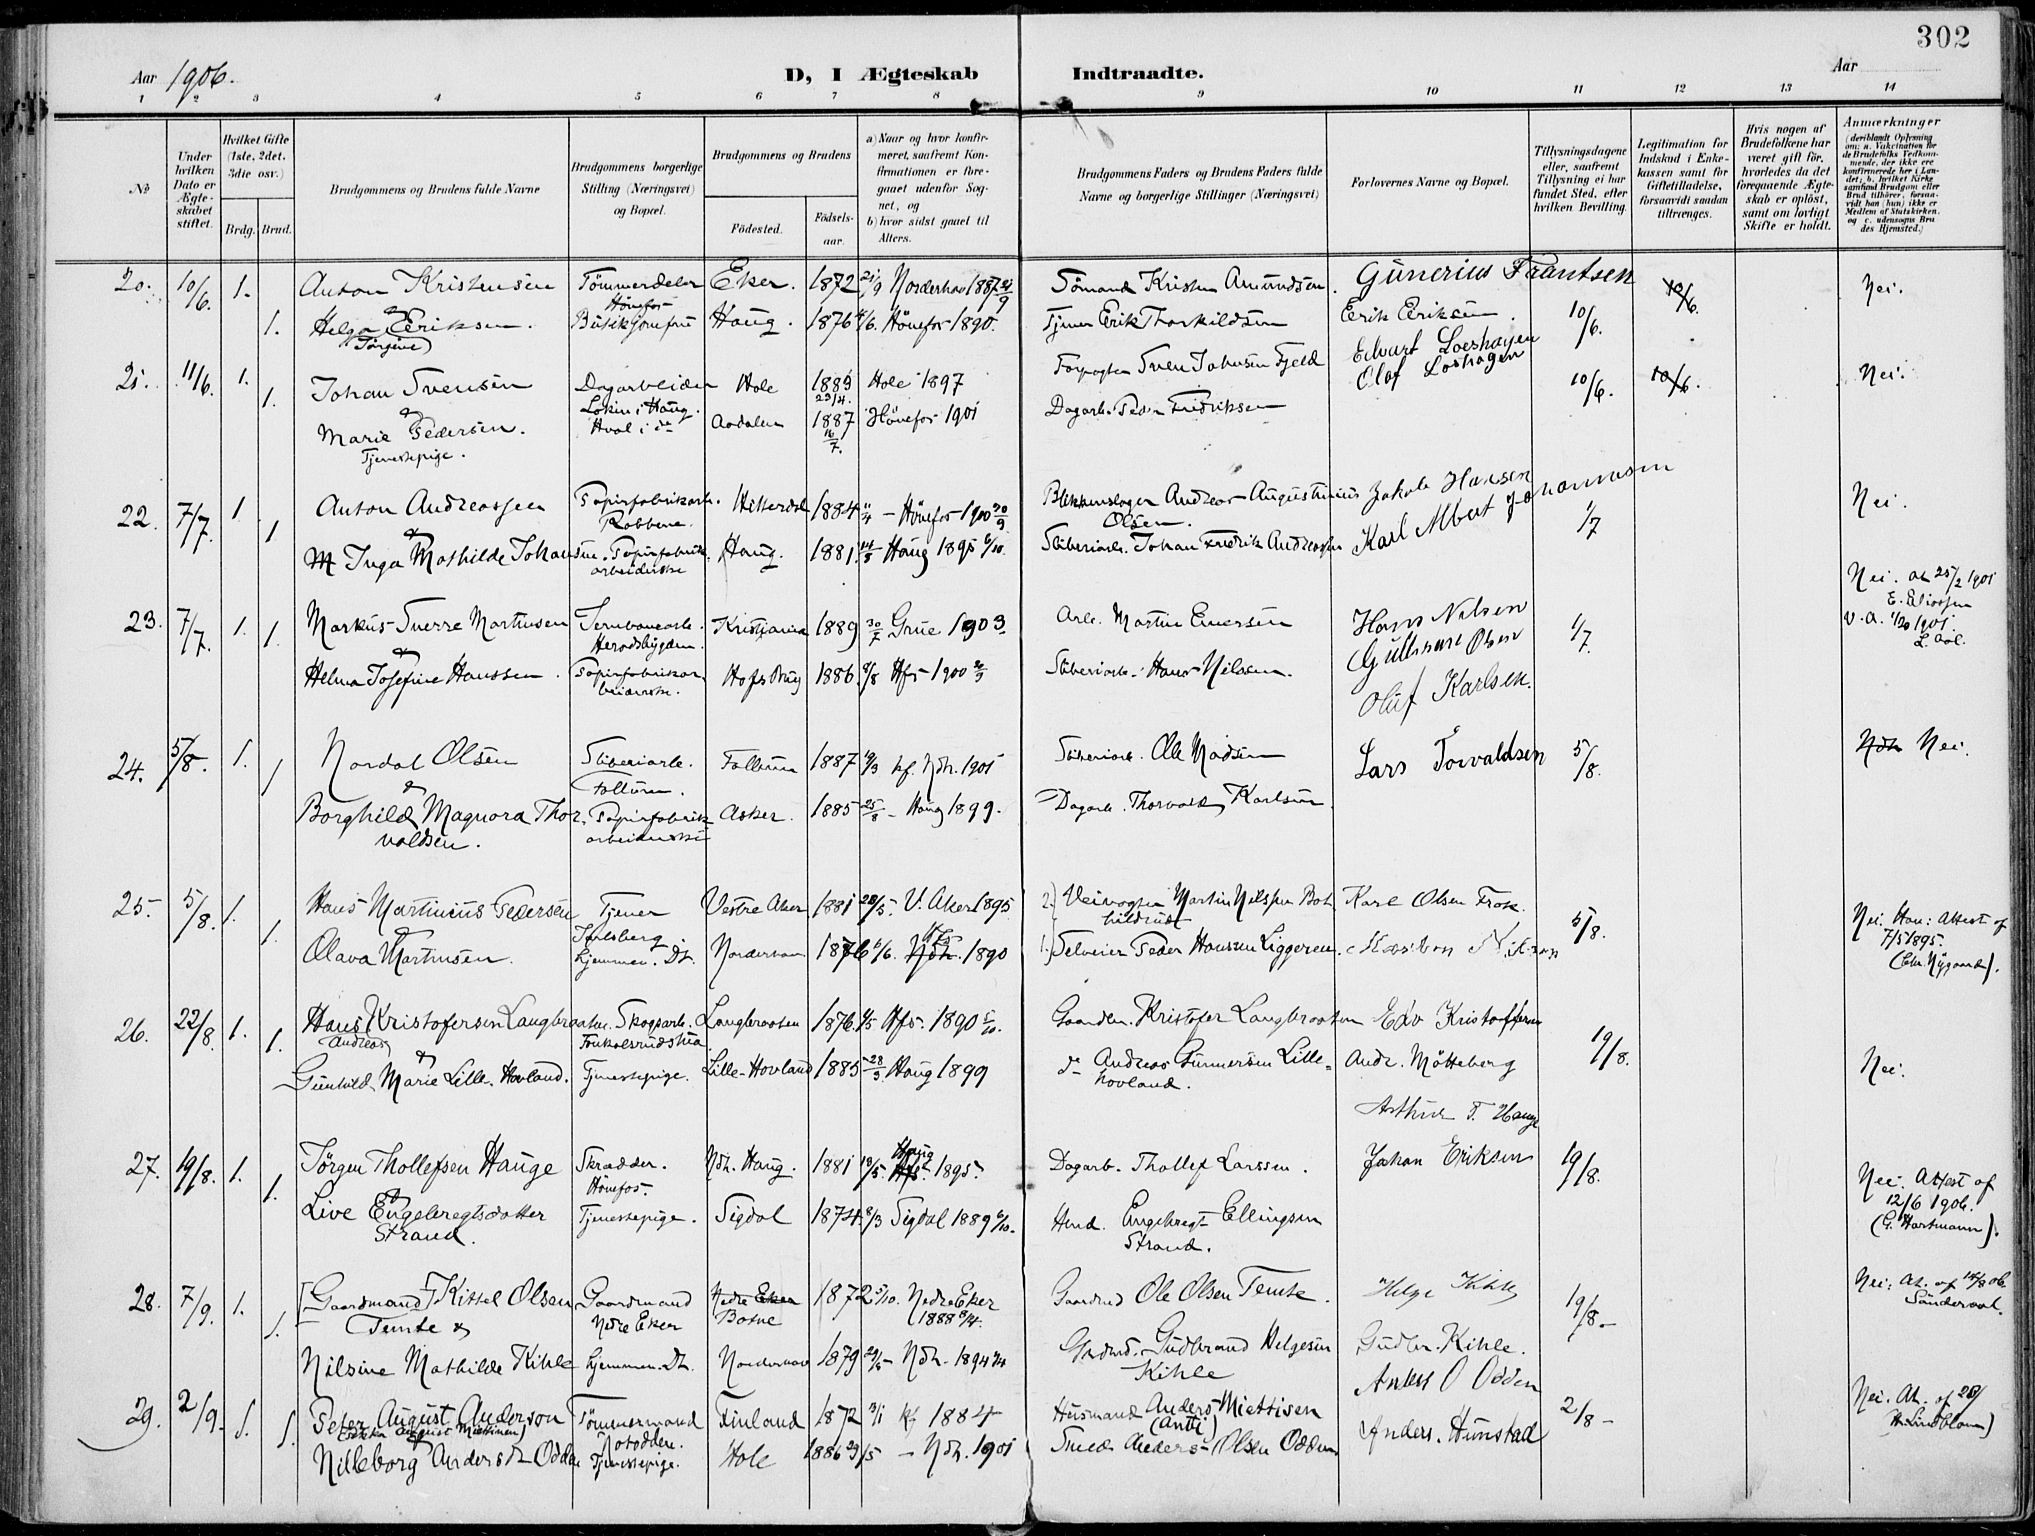 302
Aar 1906.
D, I Ægteskab Indtraadte.
Aar
1 2 3 4 5 6 7 8 9 10 11 12 13 14
No
Under hvilken Dato er Ægteskabet stiftet.
Hvilket Gifte (1ste, 2det, 3die osv.)
Brdg. Brud.
Brudgommens og Brudens fulde Navne
Brudgommens borgerlige Stilling (Næringsvei) og Bopæl.
Brudgommens og Brudens
Födested. Födselsaar.
a) Naar og hvor konfirmeret, saafremt Konfirmationen er foregaaet udenfor Sognet, og
b) hvor sidst gaaet til Alters.
Brudgommens Faders og Brudens Faders fulde Navne og borgerlige Stillinger (Næringsvei)
Forlovernes Navne og Bopæl.
Tillysningsdagene eller, saafremt Tillysning ei har fundet Sted, efter hvilken Bevilling.
Legitimation for Indskud i Enkekassen samt for Giftetilladelse, forsaavidt saadan tiltrænges.
Hvis nogen af Brudefolkene har været gift för, hvorledes da det foregaaende Ægteskab er oplöst, samt om lovligt Skifte er holdt.
Anmærkninger
20. 10/6. 1. Anton Kristensen Tömmerdeler Eker. 1872 Norderhov 1887 Sömand Kristen Amundsen. Gunerius Frantsen 10/6. Nei.
Hönefos
1. Helga Eriksen. Butikjomfru Haug. 1876 Hönefos 1890. Tjener Erik Thorkildsen Erik Eriksen. 10/6.
(Jörgine)
21. 11/6. 1. Johan Svensen Dagarbeider Hole 1883 Hole 1897 Forpagter Sven Johnsen Fjeld Edvart Loeshagen
Olaf Loshagen 10/6. 10/6. Nei.
1. & Marie Pedersen. Hval i do Aadalen 1887 16/7. Hönefos 1901 Dagarb. Peder Fredriksen
Tjenestepige.
22. 7/7. 1. Anton Andreassen Papirfabrikarb. Hitterdal 1884 Hönefos 1900 Blikkenslager Andreas Augustinius Olsen. Jakob Hansen 1/7 Nei.
1 & M Inga Mathilde Johansen. Papirfabrikarbeiderske Haug. 1881. Haug 1895 Sliberiarb. Johan Fredrik Andreassen Karl Albert Johannesen
23. 7/7. 1. Markus Sverre Martinsen Jernbanearb. Kristiania 1889 30/7 Grue 1903 Arb. Martin Enersen Hans Nilsen 1/7. Nei. At 25/2 1901
1. & Helma Josefine Hanssen. Papirfabrikarbeiderske. Hofs Brug 1886. Hfs 1900 Sliberiarb. Hans Nilsen. Gulbrand Olsen
Oluf Karlsen.
24. 5/8. 1. Nordal Olsen Sliberiarb. Follum 1887 kf. Ndh. 1901 Sliberiarb. Ole Madsen Lars Torvaldsen 5/8. Nei.
Follum.
1 & Borghild Magnora Thorvaldsen. Papirfabrikarbeiderske Asker. 1885 25/8 Haug 1899. Dagarb. Thorvald Karlsen.
25. 5/8. 1. Hans Martinius Pedersen Tjener Vestre Aker 1881 V. Aker 1895 2.) Veivogter Martin Nilssen Karl Olsen Frok. 5/8. Nei. Han: Attest af 7/5 1895.
(Chr. Nygaard).
1. Olava Martinsen. hjemmev. Dt. Norderhov 1876 Hfs Ndh. 1890 1.) Selveier Peder Hansen Liggeren.
26. 22/8. 1. Hans Kristofersen Langbraaten. Skogsarb. Langbraaten 1876. Hfs. 1890 Gaardbr. Kristofer Langbraaten Edv Kristoffersen 19/8.
Andreas
1. & Gunhild Marie Lille-Hovland. Tjenestepige. Lille-Hovland 1885 28/3 Haug 1899 do Andreas Gunnersen Lillehovland. Andr. Mötteberg Nei.
Arthur T. Hauge
27. 19/8. 1. Jörgen Thollefsen Hauge Skrædder. Ndh. Haug. 1881 Haug 1895 Dagarb. Thollef Larssen. Johan Eriksen 19/8. Nei. Attest af 12/6 1906.
(G. Hartmann).
Hönefos.
1. & Live Engebregtsdatter Strand. Tjenestepige. Sigdal 1874 Sigdal 1889 Hmd. Engebregt Ellingsen Strand.
28. 7/9. 1. [Gaardmand] Kittel Olsen Temte & Gaardmand Nedre Eker Botne 1872 Nedre Eker 1888 Gaardmd Ole Olsen Temte. Helge Kihle 19/8. Nei.
1. Nilsine Mathilde Kihle hjemmev. Dt. Norderhov 1879 Ndh. 1894 Gaardmd. Gudbrand Helgesen Kihle Gudbr. Kihle.
Anders O Odden
29. 2/9. 1. Peter August Anderson Tömmermand Finland 1872 kf 1884 Husmand Anders Miettisen 2/8 Nei.
(Peter August Miettinen) Notodden. (Antti)
1. & Nilleborg Anders Dt Odden Tjenestepige. Hole 1886 Ndh. 1901 Smed Anders Olsen Odden Anders. Hunstad